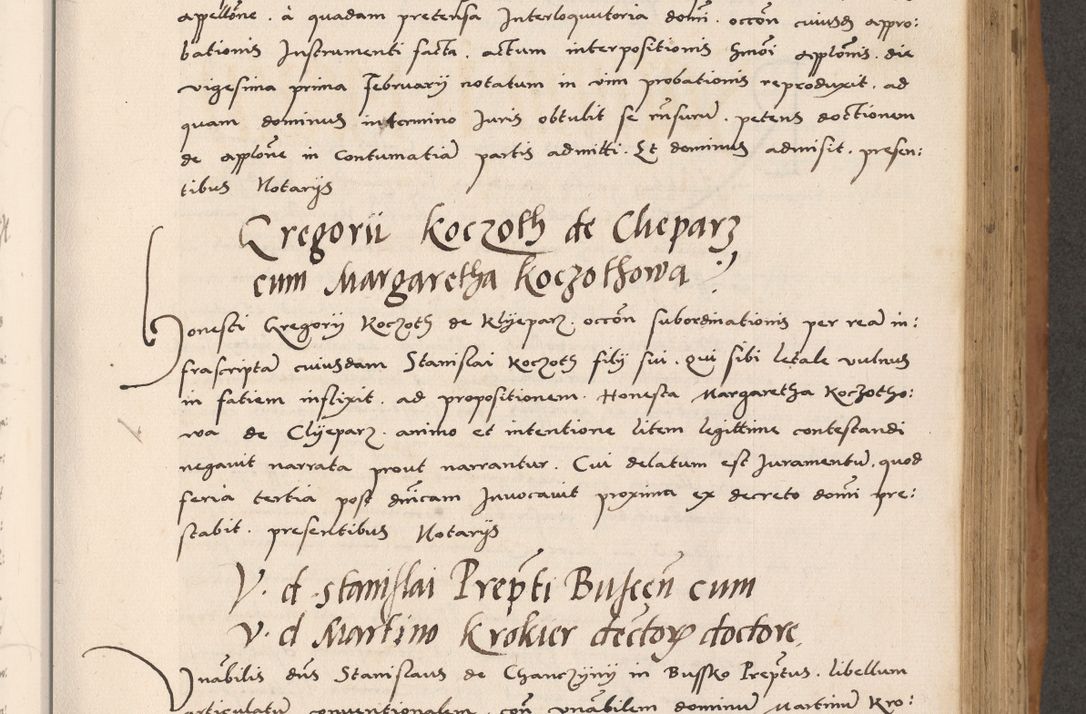 appellõne . à quadam pretensa Interloquutoria domĩ . occõn cuiusd appro:
bationis Instrumenti facta . actum interpositionis hmõi applõnis . die
vigesima prima February notatum in vim probationis reproduxit . ad
quam dominus in termino Iuris obtulit se rñsurũ . petens
de applõne in Contumatiã partis admitti . Et dominus admisit . presen:
tibus Notarijs
Gregorii Koczoth de Cheparz
cum Margaretha Koczothowa
Honesti Gregorij Koczoth de Klyeparz . occõn subordinationis per reã in:
frascriptã cuiusdam Stanislai Koczoth filij sui . qui sibi letale vulnus
in fatiem inflixit . ad propositionem . Honesta Margaretha Koczotho:
wa de Clyeparz . animo et intentione litem legittime contestandi
negavit narrata prout narrantur . Cui delatum est Iuramentũ . quod
feria tertia post dñicam Invocavit proxima ex decreto domĩ pre:
stabit . presentibus Notarijs
V . d . Stanislai Prep̃ti Buscen̄ cum
v . d Martino Krokier doctore
Vnãbilis dñs Stanislaus de Chanczyny in Bussko Prep̃tus . libellum
articulatũ conventionalem . con̄ vnãbilem dominũ Martinũ Kro: